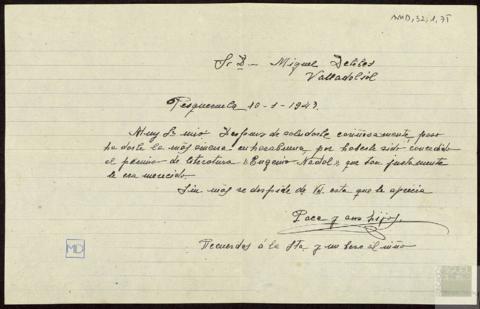 AMD, 32, 1, 75
Sr D. Miguel Delibes
Valladolid
Pesqueruela 10-1-1948
Muy Sr mio: Despues de saludarle cariñosamente paso
ha darle la más sincera enhorabuena por haberle sido concedido
el premio de literatura "Eugenio Nadal" que tan justamente
le era merecido.
Sin más se despide de Vd. esta que le aprecia
Paca y sus hijos.
Recuerdos á la Sta. y un beso al niño
MD